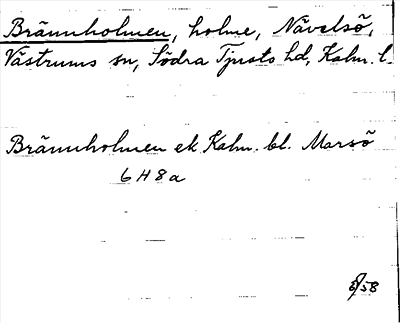 Brännholmen, holme, Nävelsö,
Västrums sn, Södra Tjusts hd, Kalm. l.
Brännholmen ek. Kalm. bl. Marsö
6 H 8 a
58